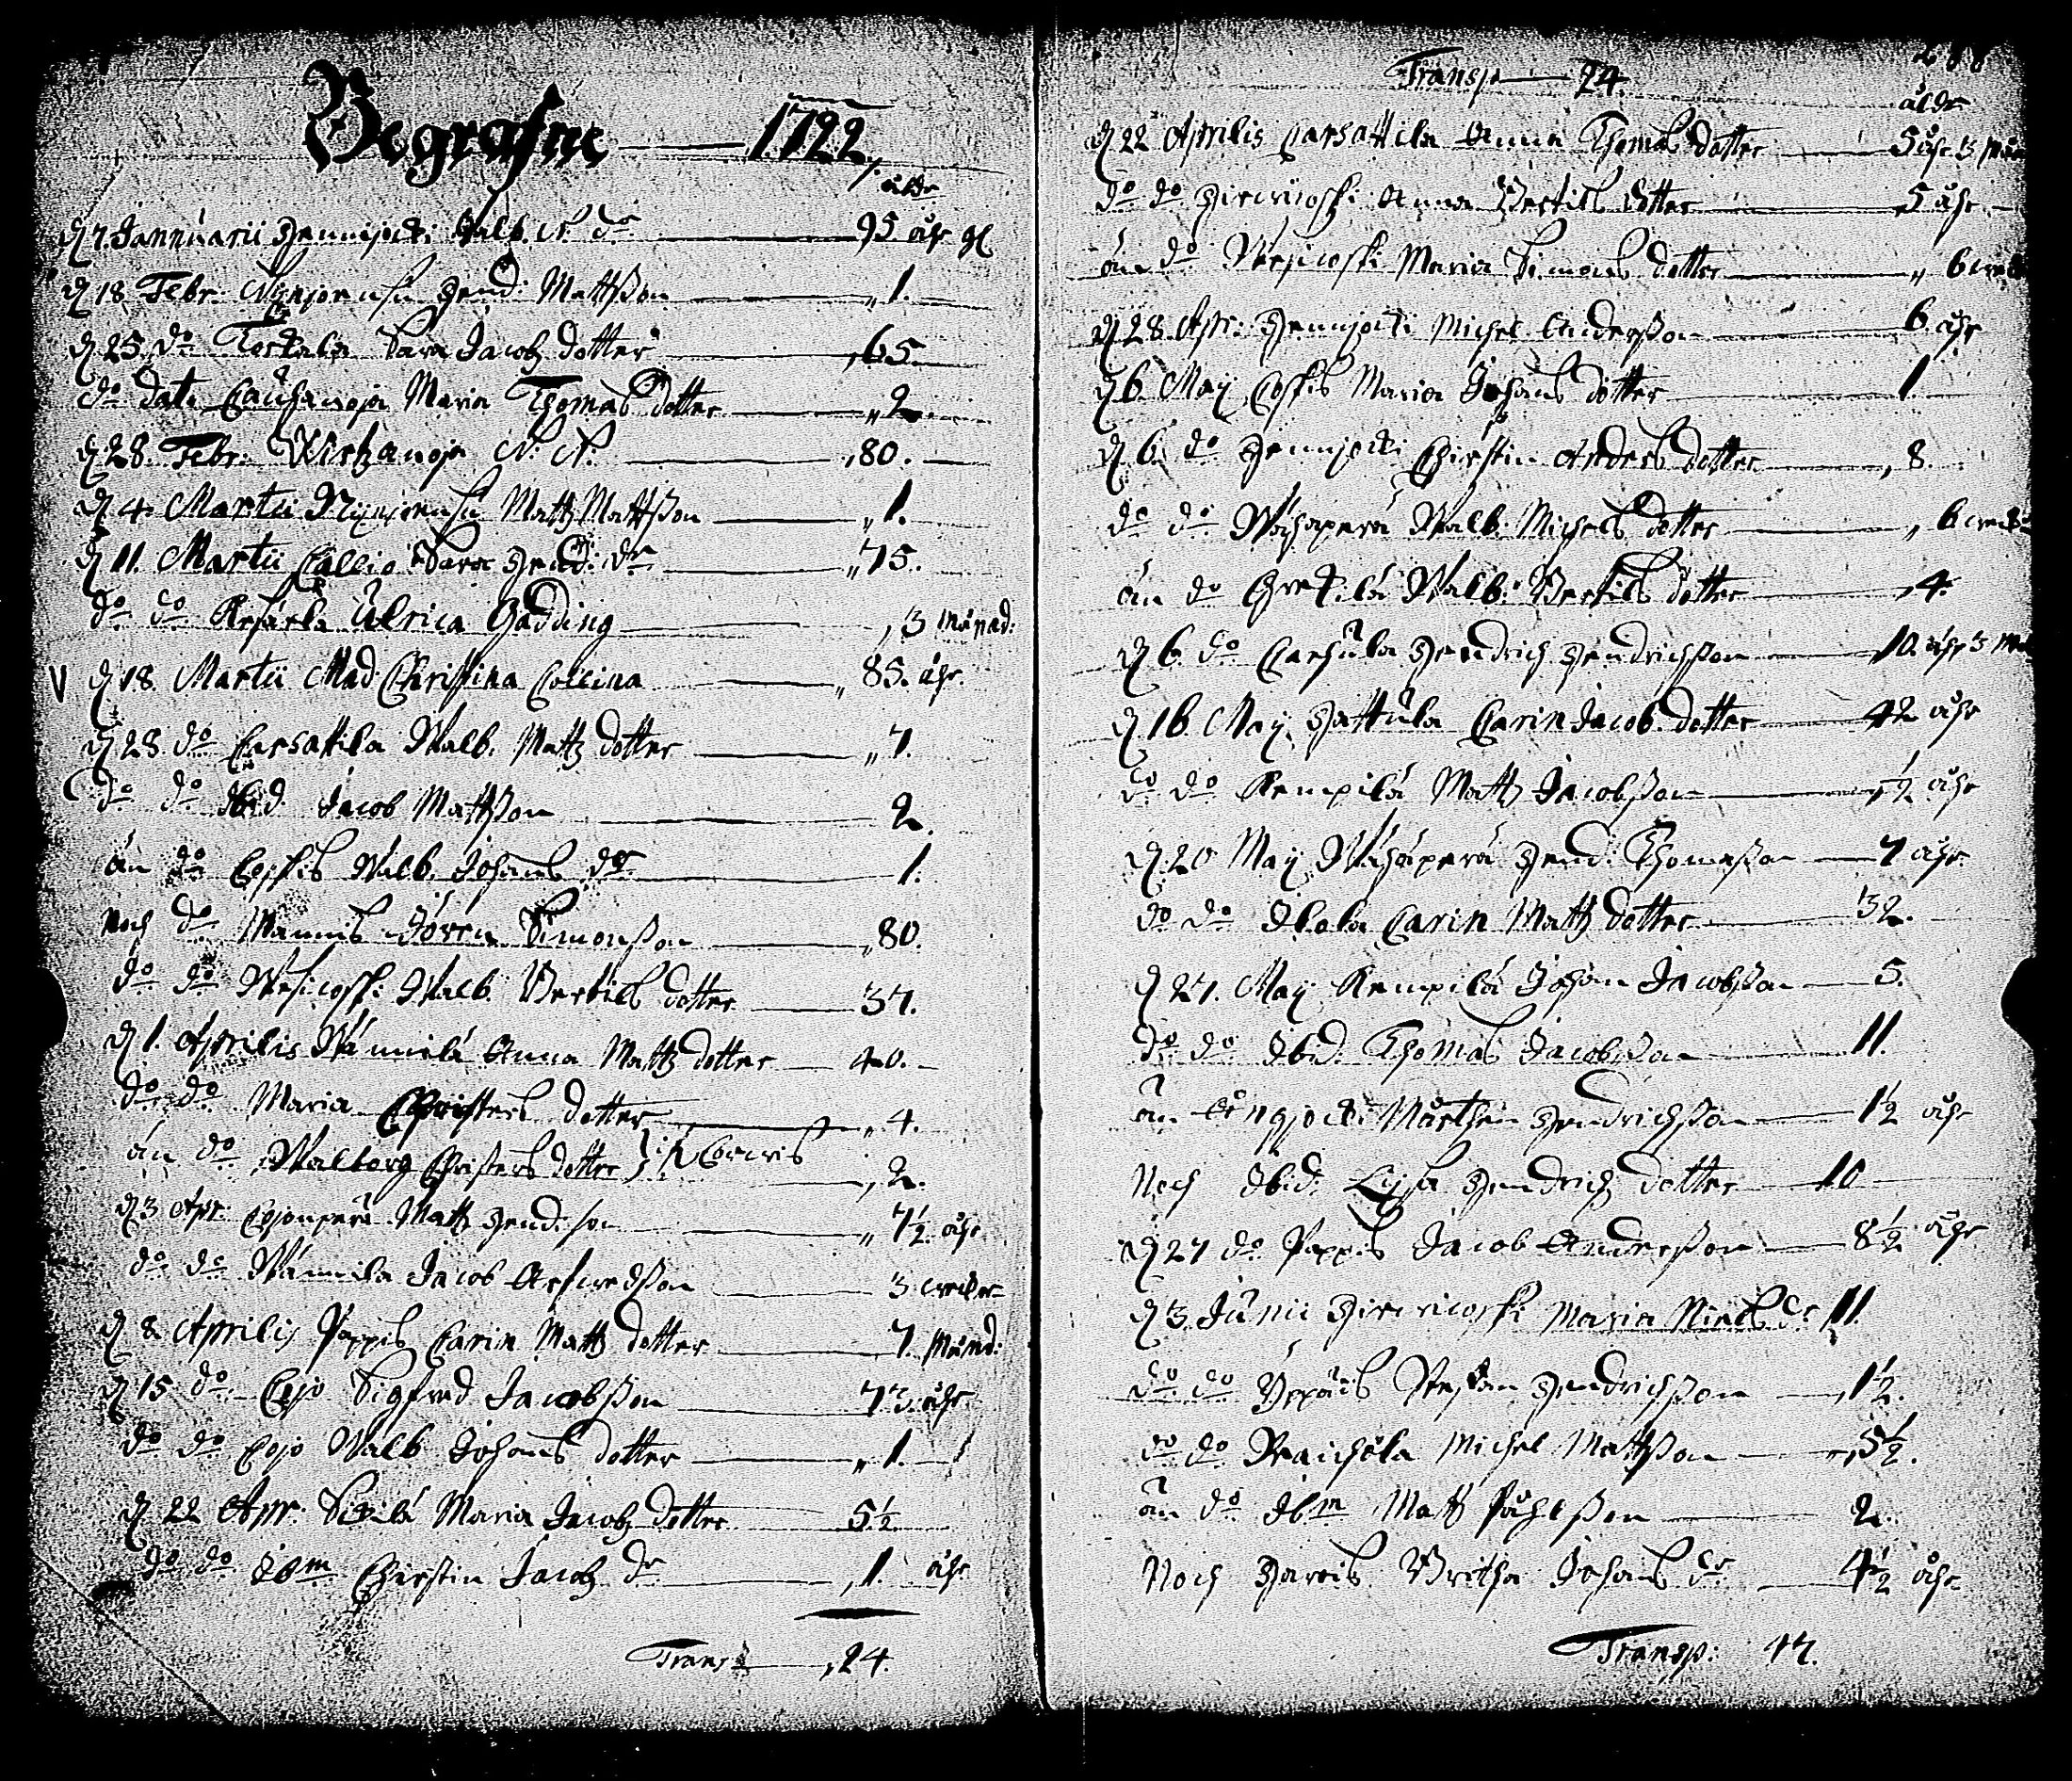 Begrafne — 1722,
åldr
d 7 Jannuarii Hennijocki Valb. N. dr — 95 åhr gl
d 18 Febr. Nynjoensu Hend: Mattßon — 1.
d 25 do Torkala Sara Jacobz dotter — 65
do dato Cauhanoja Maria Thomas dotter — 2.
d 28. Febr. Wirtzanoja N. N. — 80.
d 4. Martii Nynjoensu Mattz Mattßon — 1.
d 11. Martii Callio Sara Hend: dr — 75.
do do Ulrica Gadding — 3 månad:
V d 18. Martii Mad Christina Collina — 85. åhr.
d 28. do Carhattila Walb. Mattz dotter — 7.
do do Ibid. Jacob Mattßon — 2.
än do Coskis Walb. Johans dr — 1.
Noch do Mannis Jören Simonßon — 80.
do do Wesicoski Walb. Bertils dotter — 37.
d 1. Aprilis Wännilä Anna Mattz dotter — 40.
do do Maria Christers dotter — 4.
än do Walborg Christers dotter } — 2.
d 3 Apr: Mattz Hend: son — 7½ åhr
do do Wännila Jacob — 3 weckor
d 8 Aprilis Pappis Carin Mattz dotter — 7. månd:
d 15 do Cojo Sigfred Jacobßon — 73. åhr
do do Cojo Walb. Johans dotter — 1.
d 22 Apr: Sipilä Maria Jacobz dotter — 5½
do do ibm Chirstin Jacobz dr — 1. åhr
Transp — 24.
Transp — 24.
åldr
d 22 Aprilis Carhattila Anna Thomas dotter — 5 åhr 3 mån
do do Hirwicoski Anna Bertils dotter — 5 åhr
än do Wesicoski Maria Simons dotter — 6 weck
d 28. Apr: Hennijocki Michel Anderßon — 6 åhr
d 6. May Coskis Maria Johans dotter — 1.
d 6. do Hennijocki Chirstin Anders dotter — 8.
do do Wähäperä Walb. Michels dotter — 6 weck
än do Walb: Bertils dotter — 4.
d 6. do Carhula Hendrich Hendrichßon — 10. åhr 3
d 16 May Hattula Carin Jacobs dotter — 42 åhr
do do Rempilä Mattz Jacobßon — ½ åhr
d 20 May Wähäperä Hend: Thomaßon — 7 åhr.
do do Ilola Carin Mattz dotter — 32.
d 27. May Rempilä Johan Jacobßon — 5.
do do Ibid. Thomas Jacobßon — 11.
än Mårthen Hendrichßon — 1½ åhr
Noch Ibid: Lysa Hendrichz dotter — 10
d 27 do Pappis Jacob Anderßon — 8½ åhr
d 3. Junii Hirwicoski Maria Niels dr 11.
do do Yppäris Hendrichßon — 1½.
do do Michel Mattßon — 5½.
än do Ibm Mattz Påhlßon — 2.
Noch Harois Britha Johans dr. — 4½ åhr
Transp: 47.